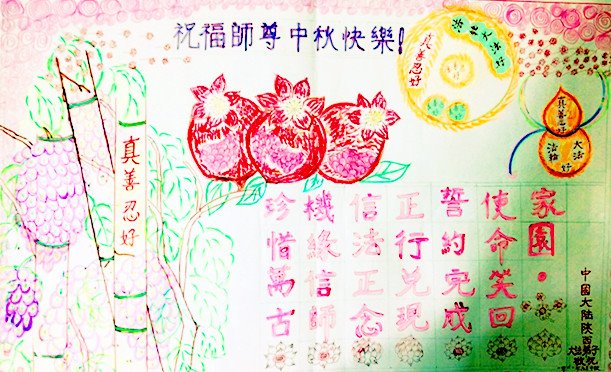 祝福師尊中秋快樂!
真善忍好
法輪大法好
真善忍好
法輪大法好
真善忍好
珍惜萬古
機緣信師
信法正念
正行兌現
誓約完成
使命笑回
家園。
中國大陸陝西
大法弟子
敬祝